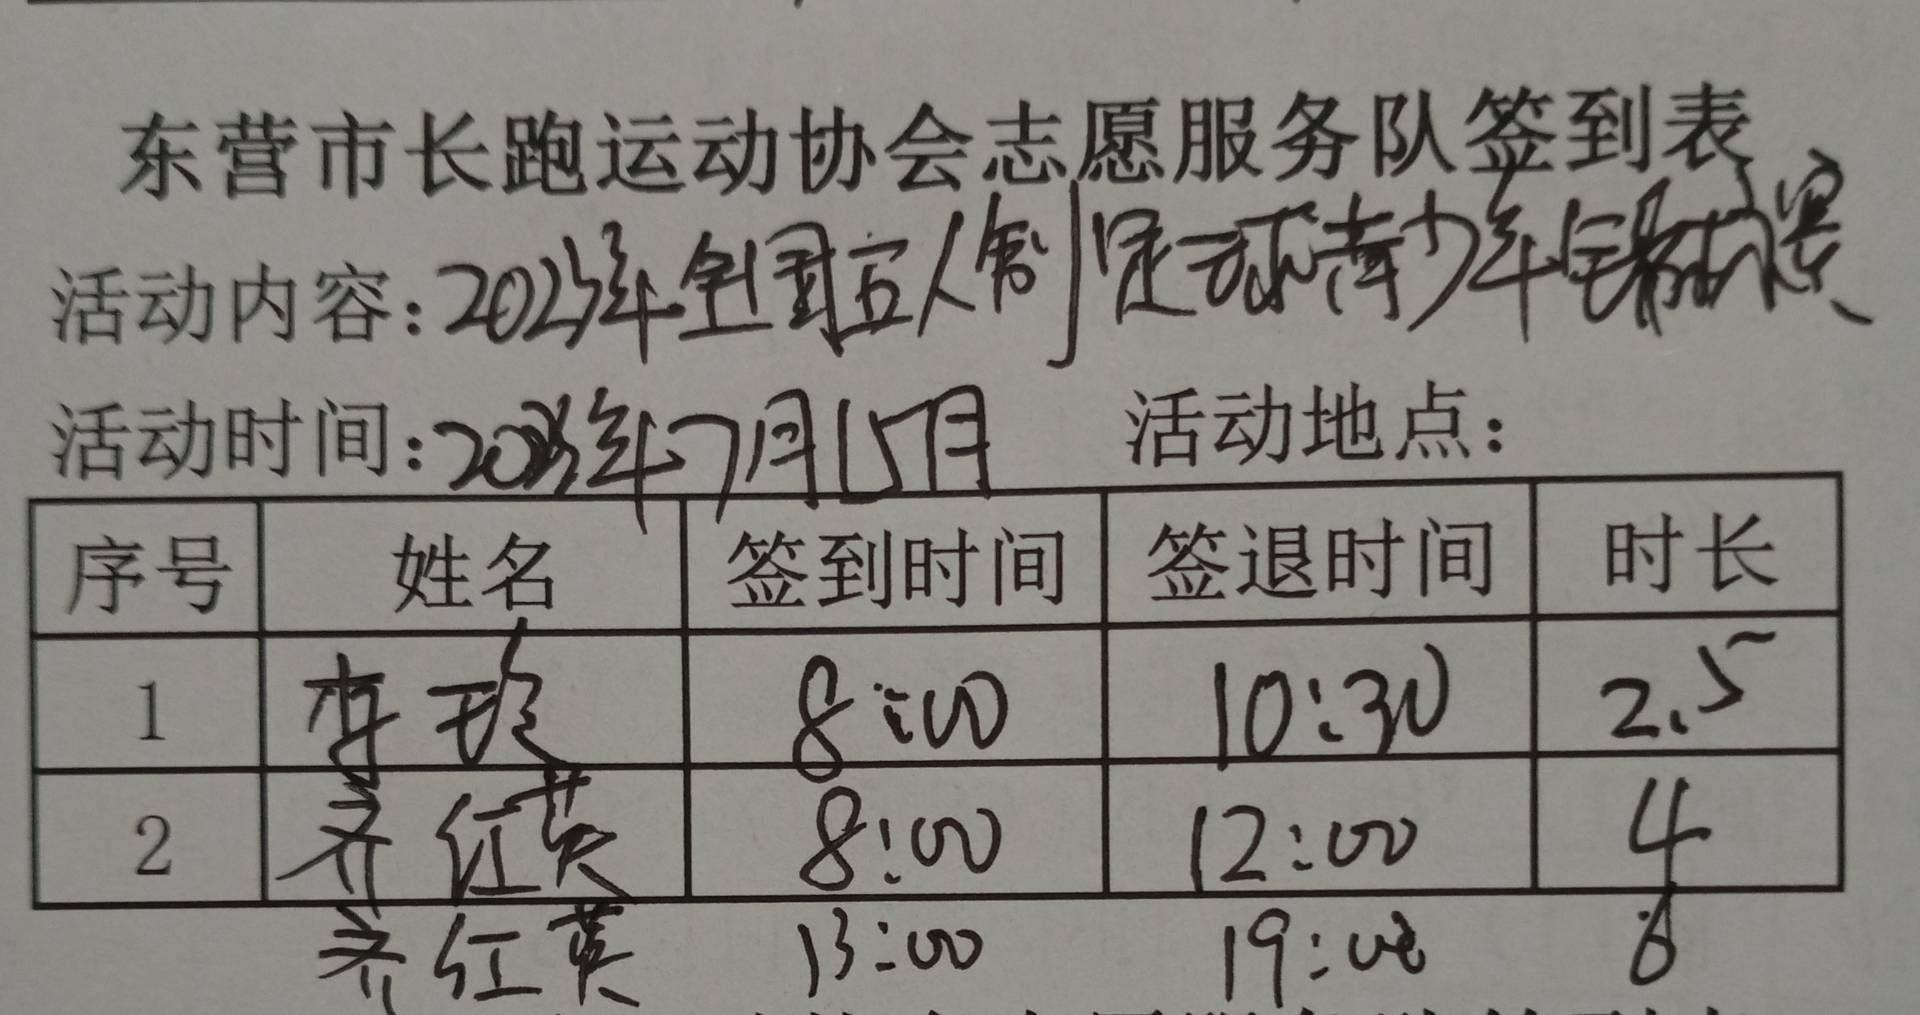 东营市长跑运动协会志愿服务队签到表
活动内容:2023年全国五人制足球青少年锦标赛
活动时间:2023年7月15日 活动地点:
序号 姓名 签到时间 签退时间 时长
1 李珍 8:00 10:30 2.5
2 齐红英 8:00 12:00 4
齐红英 13:00 19:00 6